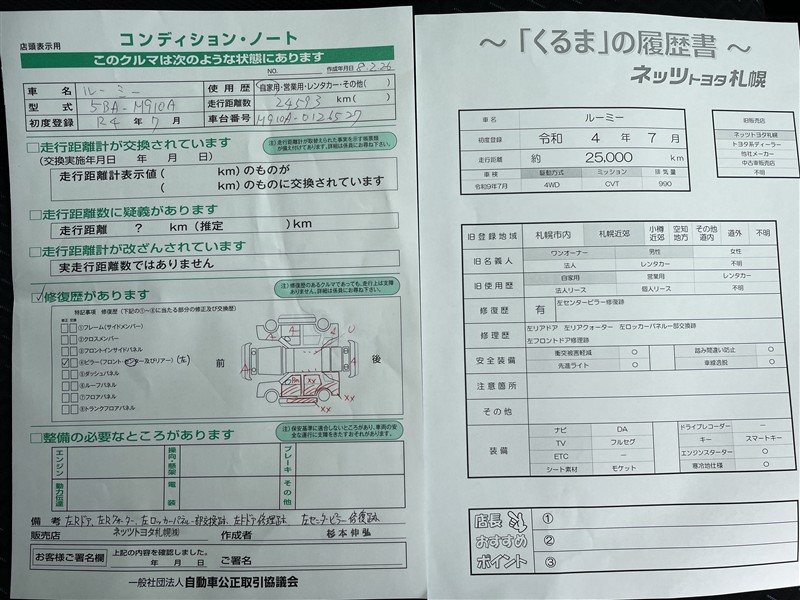 店頭表示用
コンディション・ノート
このクルマは次のような状態にあります
NO.
作成年月日 8.2.26
車名 ルーミー
使用歴 自家用・営業用・レンタカー・その他( )
型式 5BA-M910A
走行距離数 24593 km( )
初度登録 R4年7月
車台番号 M910A-0126527
□走行距離計が交換されています
(交換実施年月日 年 月 日)
走行距離計表示値( km)のものが
( km)のものに交換されています
□走行距離数に疑義があります
走行距離 ? km(推定 )km
□走行距離計が改ざんされています
実走行距離数ではありません
□修復歴があります
注)修復歴のあるクルマであっても、走行上は支障ありません。詳細は係員にお尋ねください。
特記事項 修復歴(下記の①~⑧に当たる部分の修正及び交換歴)
修正 交換
①フレーム(サイドメンバー)
②クロスメンバー
③フロントインサイドパネル
④ピラー(フロント・センター及びリアー)(左)
⑤ダッシュパネル
⑥ルーフパネル
⑦フロアパネル
⑧トランクフロアパネル
前
後
□整備の必要なところがあります
注)保安基準に適合しないところがあり、車両の安全な運行に支障をきたすおそれがあります。
エンジン
操向・懸架
ブレーキ
動力伝達
電装
その他
備考 左Rドア、左Rクォーター、左ロッカーパネル一部交換跡、左Fドア修理跡、左センターピラー修復跡
販売店 ネッツトヨタ札幌㈱
作成者 杉本伸弘
お客様ご署名欄
上記の内容を確認しました。
年 月 日
ご署名
一般社団法人 自動車公正取引協議会
~「くるま」の履歴書~
ネッツトヨタ札幌
車名 ルーミー
初度登録 令和 4 年 7 月
走行距離 約 25,000 km
車検 駆動方式 ミッション 排気量
令和9年7月 4WD CVT 990
旧販売店
ネッツトヨタ札幌
トヨタ系ディーラー
他社メーカー
中古車販売店
不明
旧登録地域 札幌市内 札幌近郊 小樽近郊 空知地方 その他道内 道外 不明
旧名義人 ワンオーナー 男性 女性
法人 レンタカー 不明
旧使用歴 自家用 営業用 レンタカー
法人リース 個人リース 不明
修復歴 有 左センターピラー修復跡
修理歴 左リアドア 左リアクォーター 左ロッカーパネル一部交換跡
左フロントドア修理跡
安全装備 衝突被害軽減 ○ 踏み間違い防止 ○
先進ライト ○ 車線逸脱 ○
注意箇所
その他
装備 ナビ DA ドライブレコーダー －
TV フルセグ キー スマートキー
ETC － エンジンスターター ○
シート素材 モケット 寒冷地仕様 ○
店長
おすすめ
ポイント
①
②
③